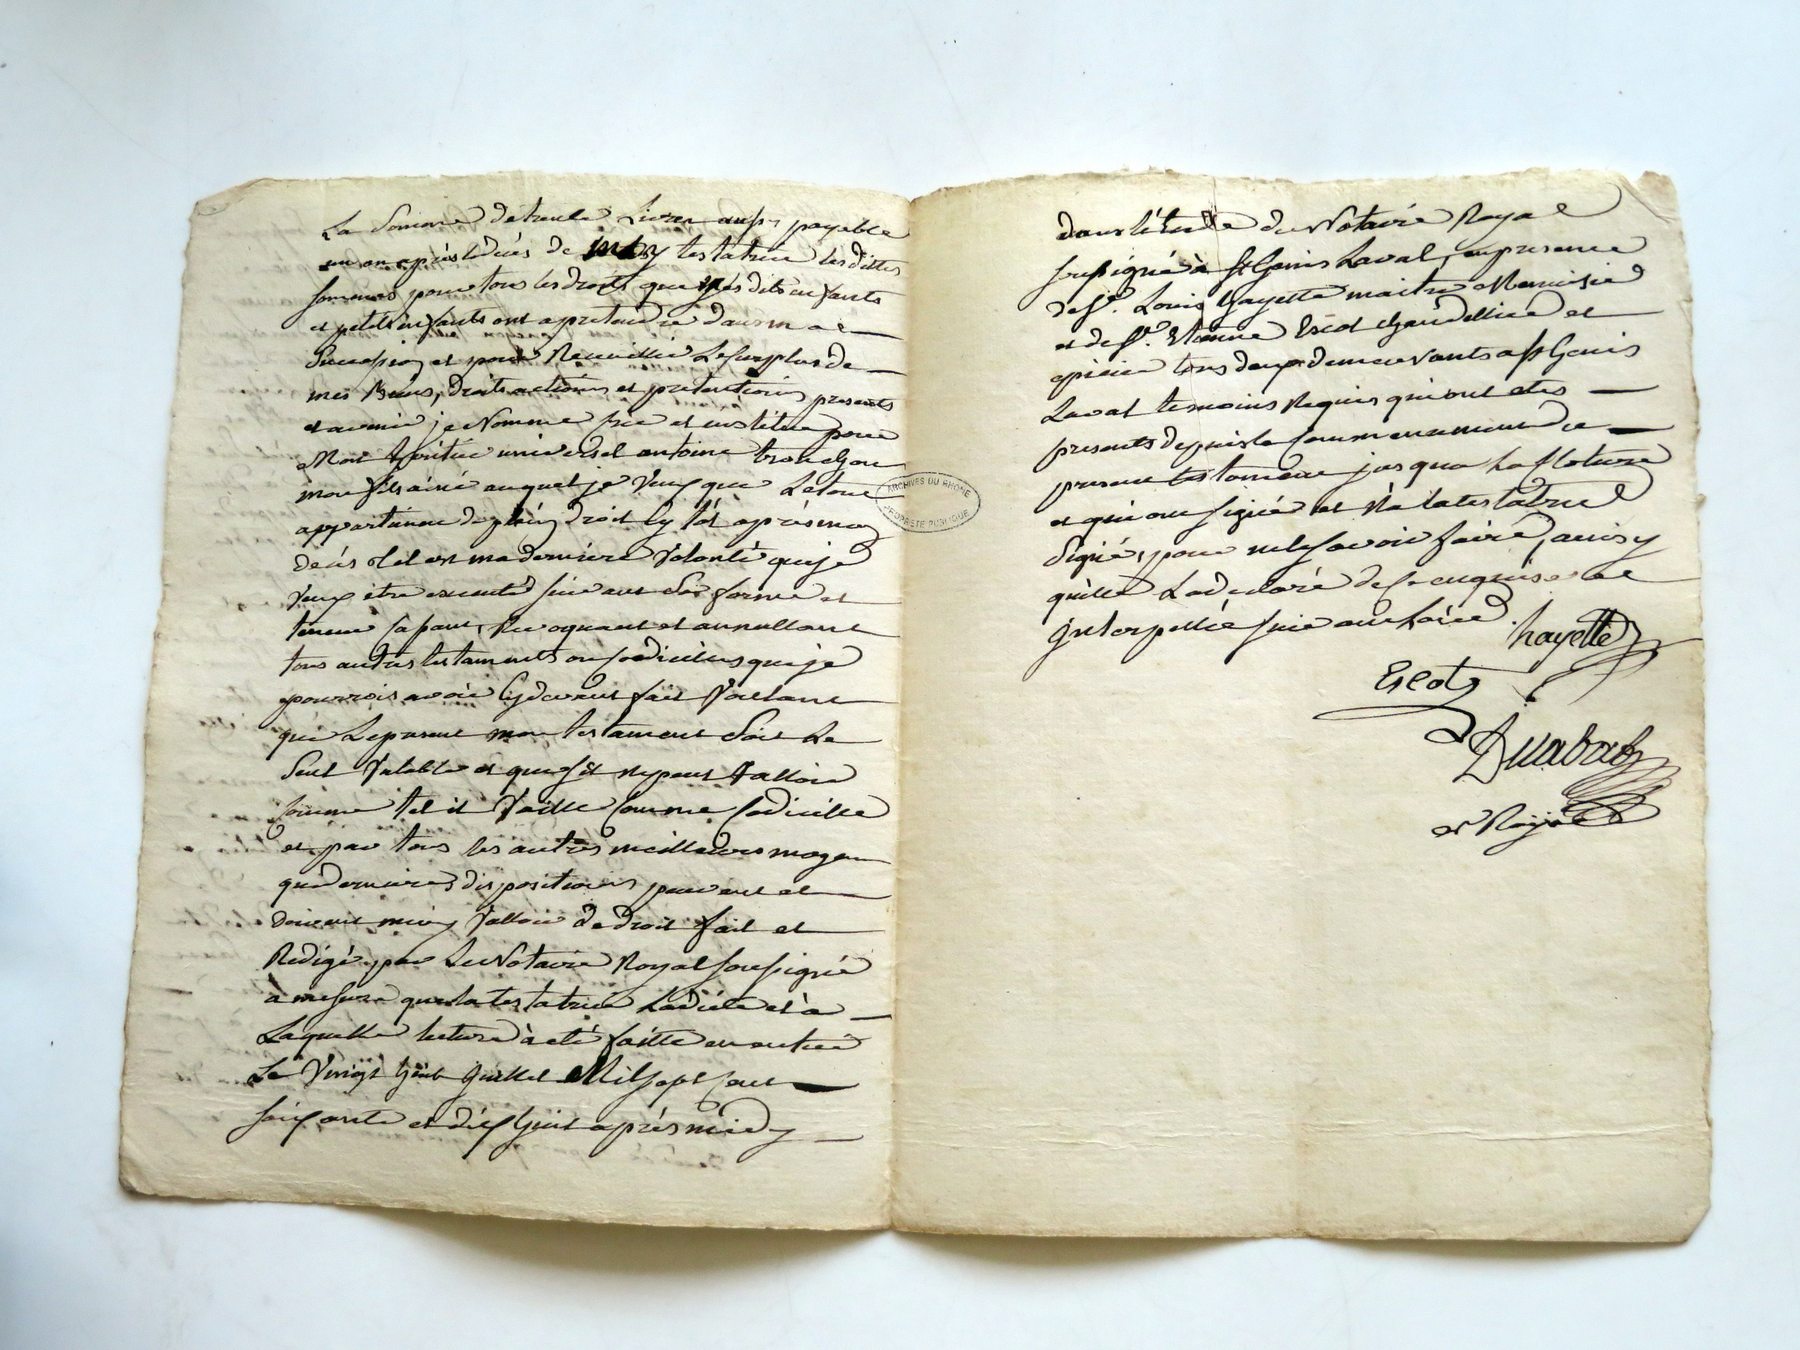 La Somme de trente Livres aussy payable
un an après le décès de moy testatrice lesdittes
sommes pour tous les droits que mesdits enfants
et petits enfants ont a pretendre dans ma
Succession et pour Recueillir Le surplus de
mes Biens, Droits actions et pretentions presents
et avenir je Nomme cree et institue pour
Mon héritier universel antoine tronchon
mon fils ainé auquel je Veux que Le tout
appartienne de plein droit sy tôt après mon
décès tel est ma dernière Volonté que je
Veux etre executé suivant Sa forme et
teneur Revoquant et annullant
tous autres testaments ou codicilles que je
pourrois avoir Cy devant fait Voulant
que Le present mon testament Soit Le
Seul Valable et que s'il ne peut Valloir
comme tel il Vaille comme codicille
et par tous les autres meilleurs moyens
que dernieres dispositions peuvent et
doivent mieux Valloir de droit fait et
Redigé par Le Notaire Royal soussigné
a mesure que la testatrice La dicté et à
Laquelle lecture à eté faitte en entier
Le Vingt huit Juillet Mil sept cent
soixante et dix huit après midy
dans l'étude du Notaire Royal
soussigné à St Genis Laval, en presence
de Sr. Louis hayette maitre Menuisier
et de Sr. Etienne Escot chandellier et
epicier tous deux demeurants a St Genis
Laval temoins Requis qui ont etes
presents depuis le commencement du
present testament jusqua La Cloture
et qui ont signé et Na la testatrice
Signé, pour ne le savoir faire, ainsy
quelle La declaré de ce enquise et
Interpellée suivant Loix.
hayette
Escot
Duabad
Nre Royal
ARCHIVES DU RHÔNE
PROPRIÉTÉ PUBLIQUE